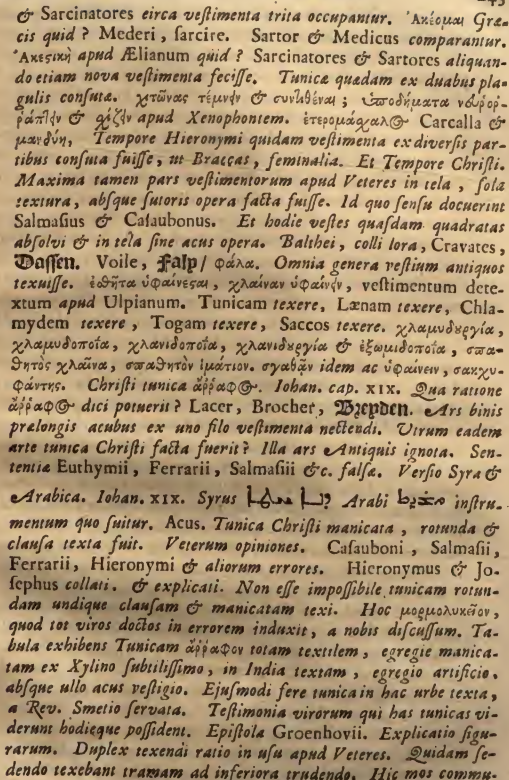 & Sarcinatores circa veſtimenta trita occupantur. Ἀκέομαι Græ-
cis quid? Mederi, ſarcire. Sartor & Medicus comparantur.
Ἀκεσικὴ apud Ælianum quid? Sarcinatores & Sartores aliquan-
do etiam nova veſtimenta feciſſe. Tunicæ quædam ex duabus pla-
gulis conſutæ. χιτῶνας τέμνειν & συντιθέναι; ὑποδήματα νευρορ-
ραπτεῖν & σχίζειν apud Xenophontem. ἑτερομάσχαλος Carcalla &
μανδύη, Tempore Hieronymi quidam veſtimenta ex diverſis par-
tibus conſuta fuiſſe, ut Braccas, feminalia. Et Tempore Chriſti.
Maxima tamen pars veſtimentorum apud Veteres in tela, ſola
textura, abſque ſutoris opera facta fuiſſe. Id quo ſenſu docuerint
Salmaſius & Caſaubonus. Et hodie veſtes quaſdam quadratas
abſolvi & in tela ſine acus opera. Balthei, colli lora, Cravates,
Daſſen. Voile, Falp/ φάλα. Omnia genera veſtium antiquos
texuiſſe. ἐσθῆτα ὑφαίνεσαι, χλαίναν ὑφαίνειν, veſtimentum dete-
xtum apud Ulpianum. Tunicam texere, Lænam texere, Chla-
mydem texere, Togam texere, Saccos texere. χλαμυδουργία,
χλαμυδοποιΐα, χλανιδοποιΐα, χλανιδουργία & ἐξωμιδοποιΐα, σπα-
θητὸς χλαῖνα, σπαθητὸν ἱμάτιον. σπαθᾷν idem ac ὑφαίνειν, σακχυ-
φάντης. Chriſti tunica ἄῤῥαφος. Iohan. cap. XIX. Qua ratione
ἄῤῥαφος dici potuerit? Lacer, Brocher, Breyden. Ars binis
prælongis acubus ex uno filo veſtimenta nectendi. Utrum eadem
arte tunica Chriſti facta fuerit? Illa ars Antiquis ignota. Sen-
tentia Euthymii, Ferrarii, Salmaſii &c. falſæ. Verſio Syra &
Arabica. Iohan. XIX. Syrus Arabi inſtru-
mentum quo ſuitur. Acus. Tunica Chriſti manicata, rotunda &
clauſa texta fuit. Veterum opiniones. Caſauboni, Salmaſii,
Ferrarii, Hieronymi & aliorum errores. Hieronymus & Jo-
ſephus collati. & explicati. Non eſſe impoſſibile tunicam rotun-
dam undique clauſam & manicatam texi. Hoc μορμολυκεῖον,
quod tot viros doctos in errorem induxit, a nobis diſcuſſum. Ta-
bula exhibens Tunicam ἄῤῥαφον totam textilem, egregie manica-
tam ex Xylino ſubtiliſſimo, in India textam, egregio artificio,
abſque ullo acus veſtigio. Ejuſmodi fere tunica in hac urbe texta,
a Rev. Smetio ſervata. Teſtimonia virorum qui has tunicas vi-
derunt hodieque poſſident. Epiſtola Groenhovii. Explicatio figu-
rarum. Duplex texendi ratio in uſu apud Veteres. Quidam ſe-
dendo texebant tramam ad inferiora trudendo. Hic mos commu-